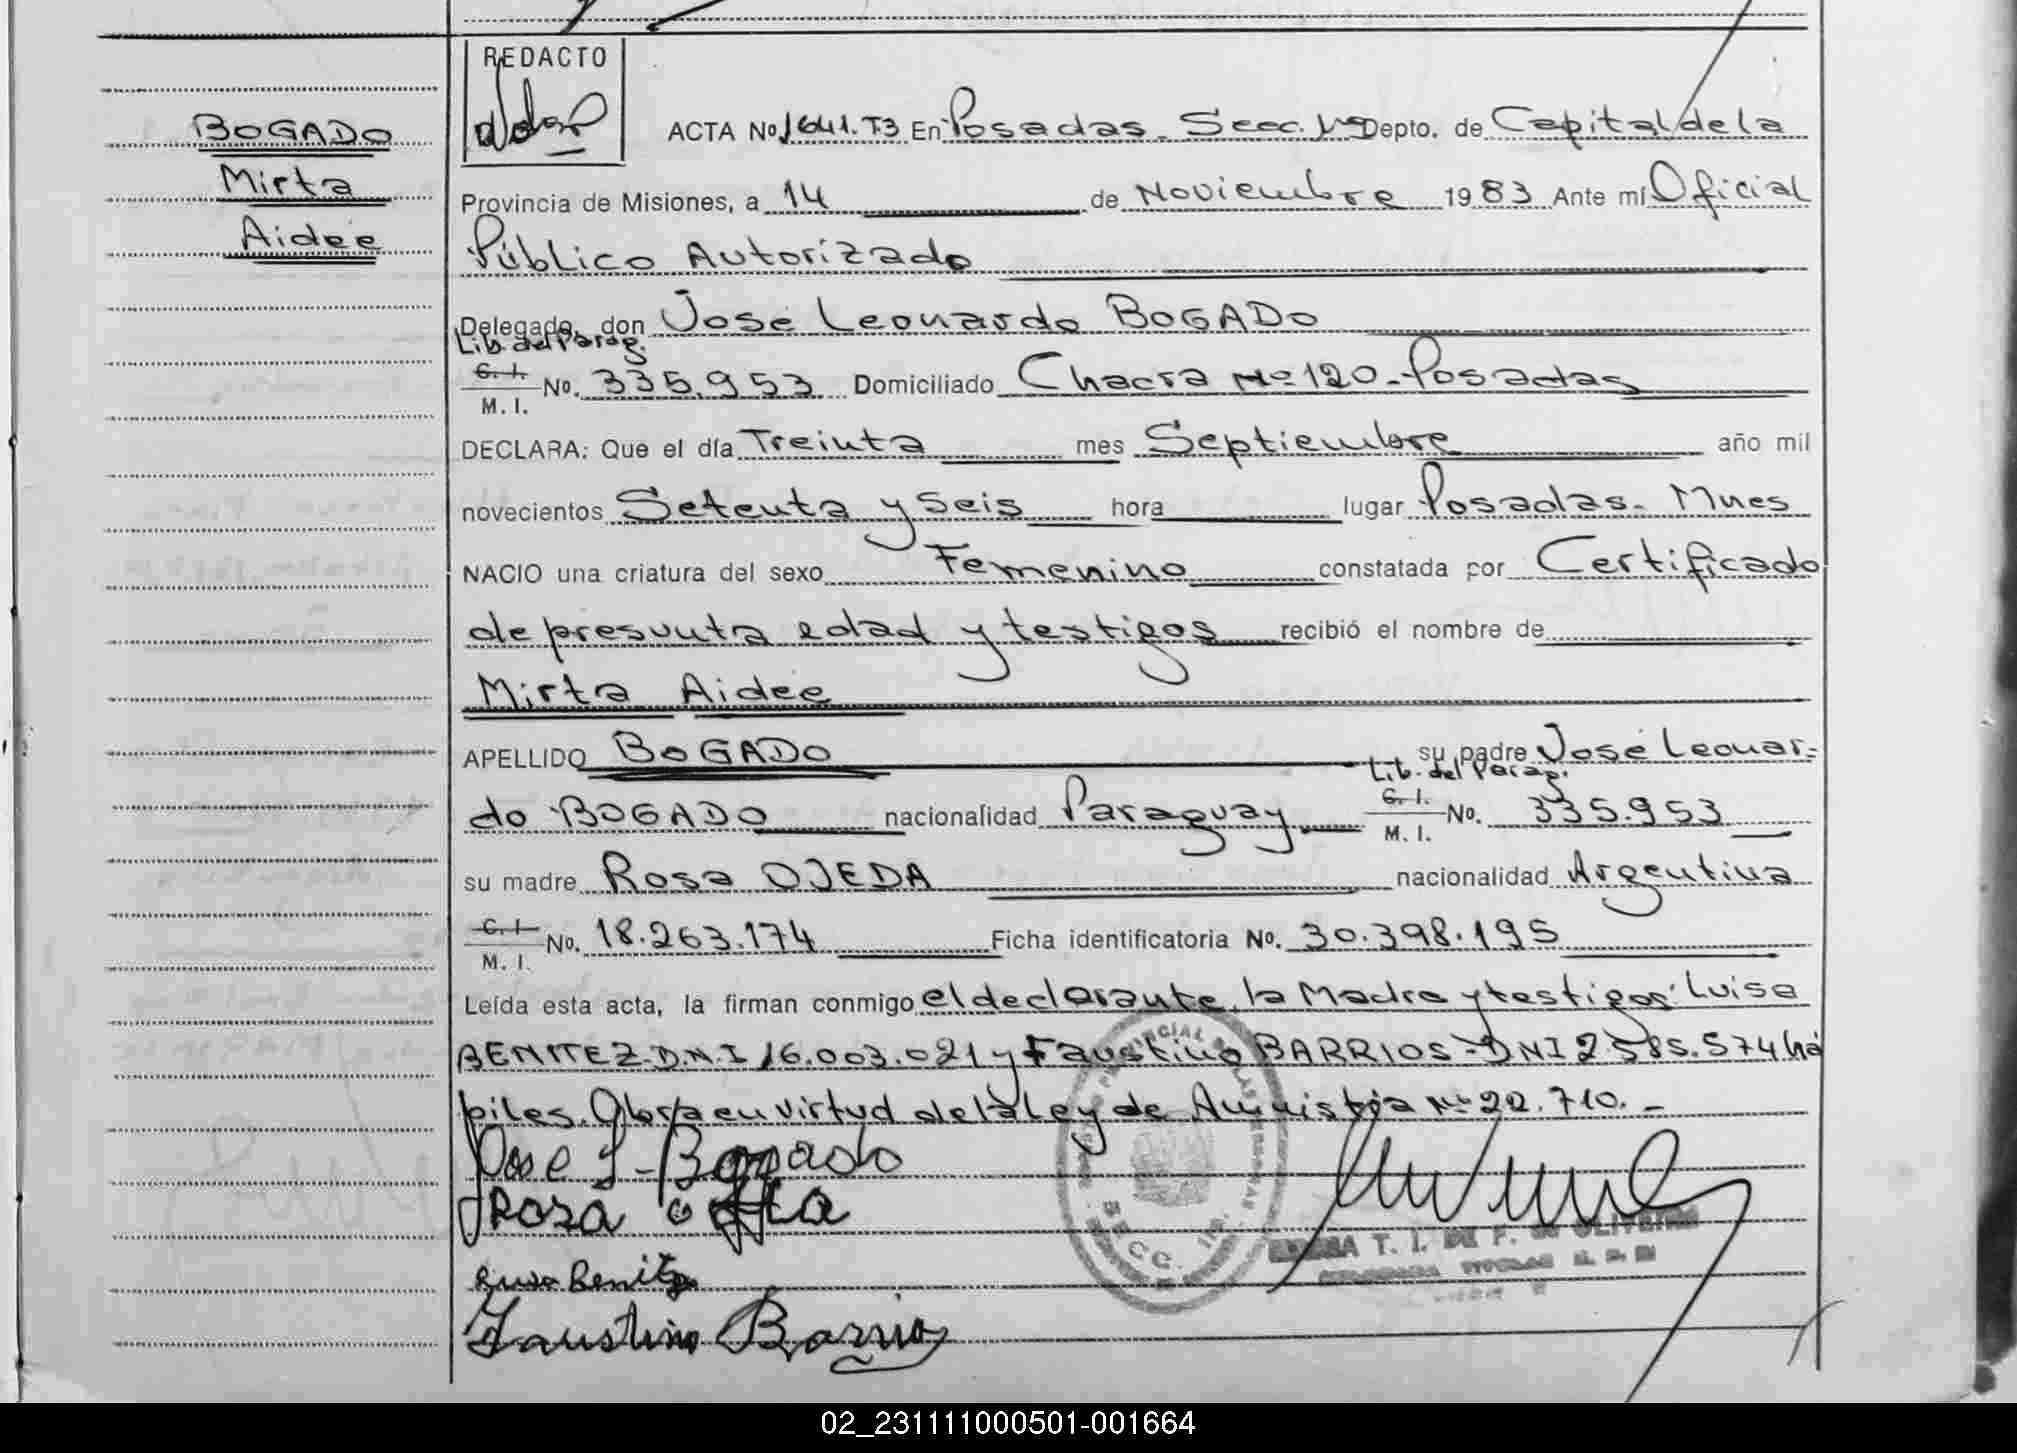 REDACTO
BOGADO
Mirta
Aidee
ACTA No 1641.T3 En Posadas. Secc. 1ª Depto. de Capital de la
Provincia de Misiones, a 14 de Noviembre 1983 Ante mí Oficial
Público Autorizado
Delegado, don José Leonardo BOGADO
Lib. del Parag.
C. I. M. I. No. 335.953 Domiciliado Chacra Nº 120-Posadas
DECLARA: Que el día Treinta mes Septiembre año mil
novecientos Setenta y Seis hora lugar Posadas. Mnes
NACIO una criatura del sexo Femenino constatada por Certificado
de presunta edad y testigos recibió el nombre de
Mirta Aidee
APELLIDO BOGADO su padre José Leonar-
Lib. del Parag.
do BOGADO nacionalidad Paraguay C. I. M. I. No. 335.953
su madre Rosa OJEDA nacionalidad Argentina
C. I. M. I. No. 18.263.174 Ficha identificatoria No. 30.398.195
Leída esta acta, la firman conmigo el declarante, la Madre y testigos: Luisa
BENITEZ-D.N.I 16.003.021 y Faustino BARRIOS-DNI 2.585.574 há
biles. Obra en virtud de la Ley de Amnistía Nº 22.710.-
Jose L-Bogado
Rosa
Luisa Benitez
Faustino Barrios
SECC.
T. I. DE F. DE OLIVEIRA
02_231111000501-001664